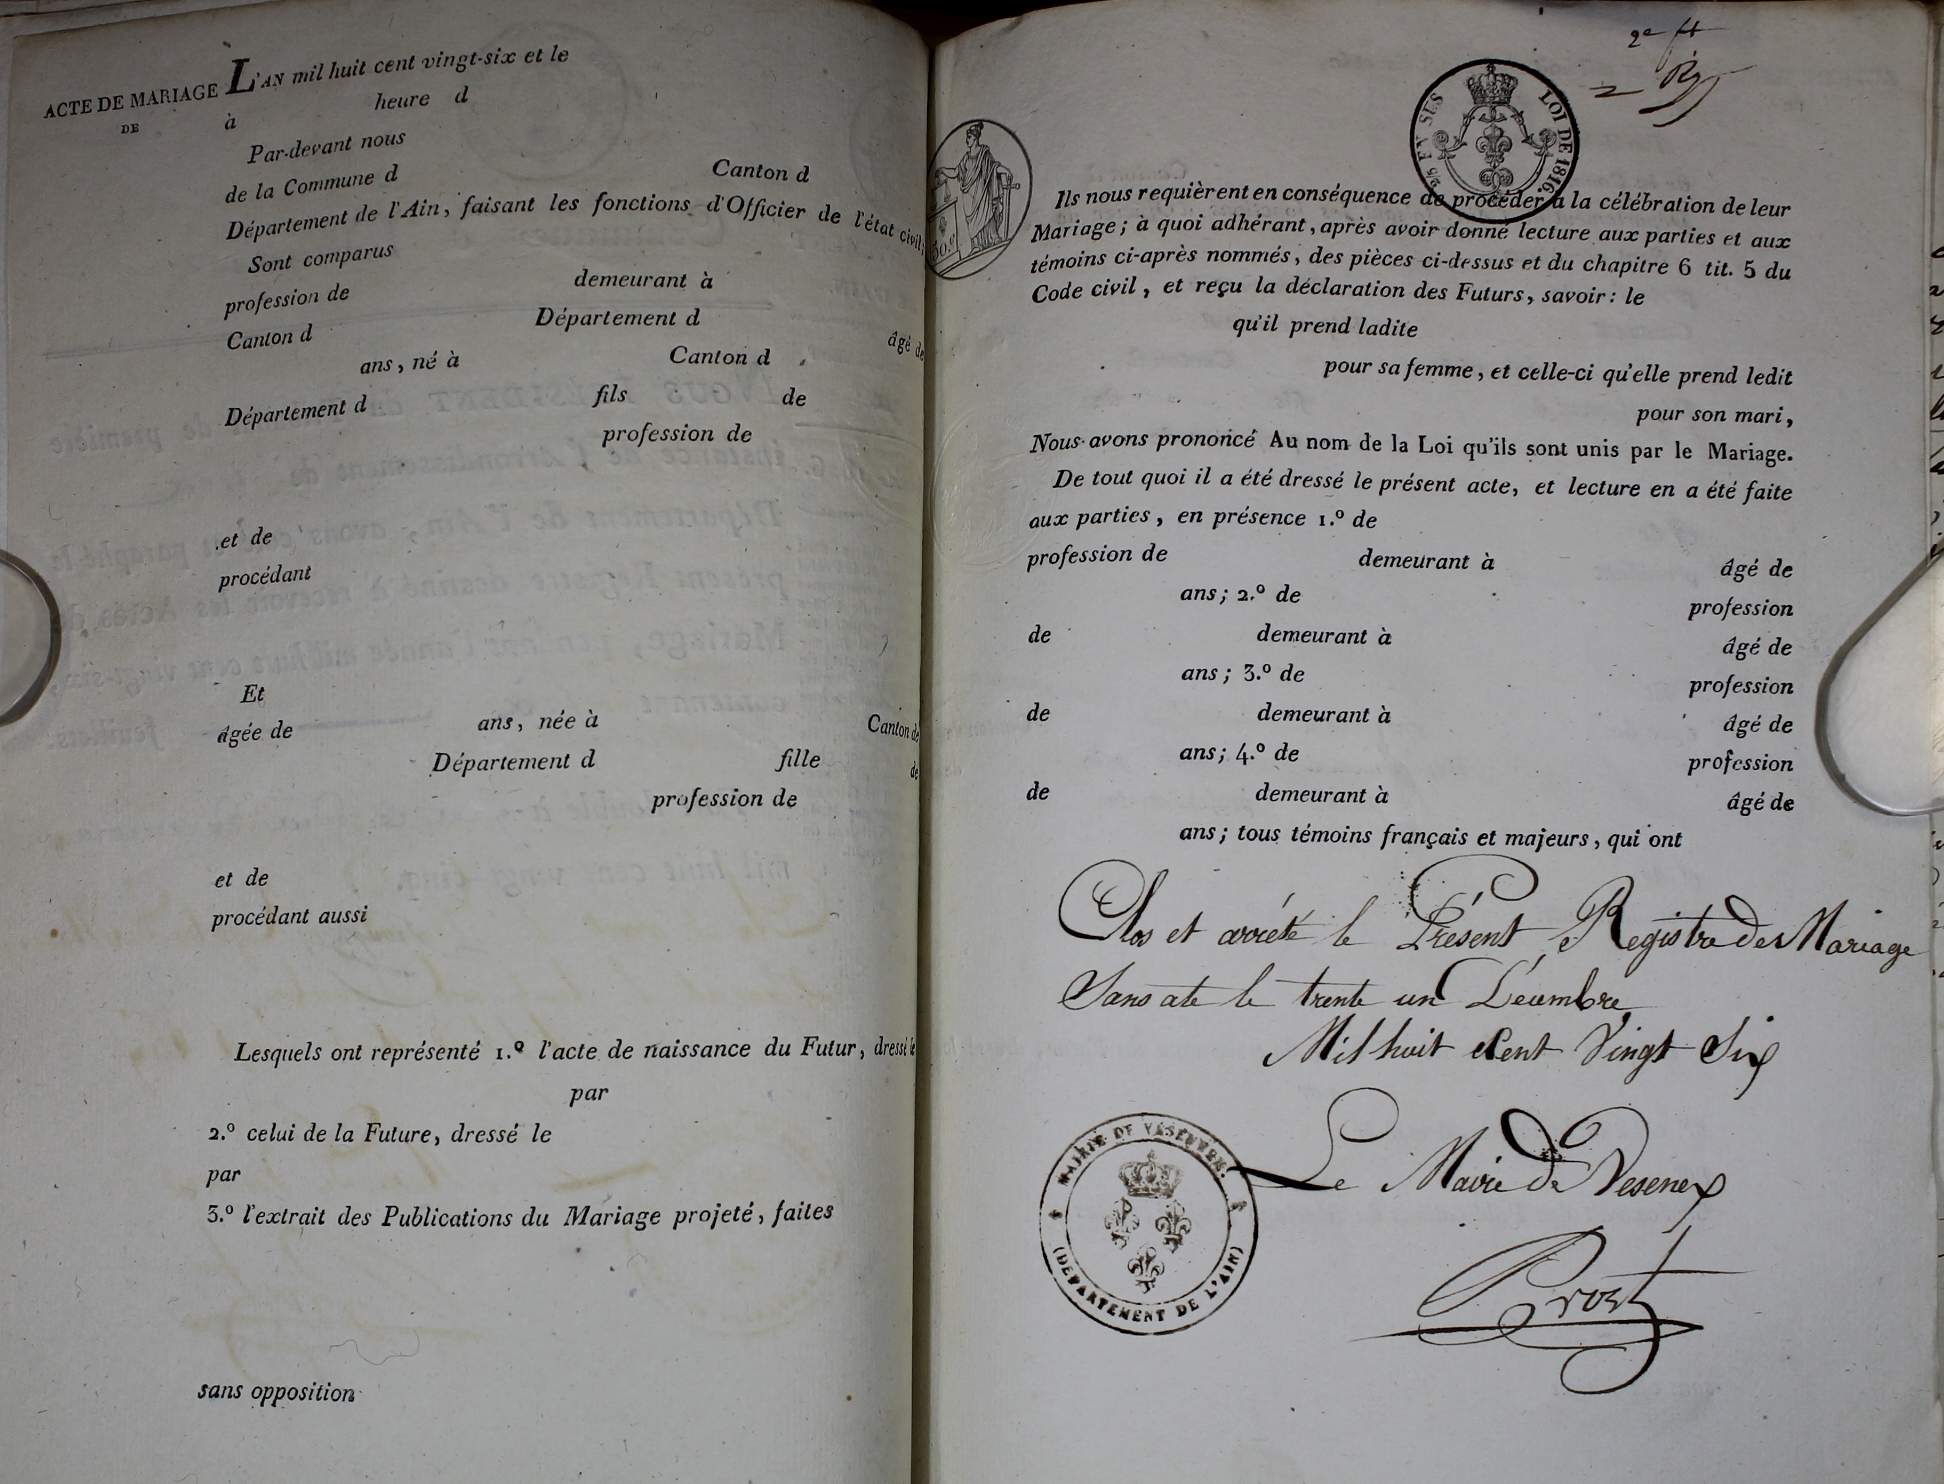 ACTE DE MARIAGE
DE
L'AN mil huit cent vingt-six et le
à heure d
Par-devant nous
de la Commune d Canton d
Département de l'Ain, faisant les fonctions d'Officier de l'état civil,
Sont comparus
profession de demeurant à
Canton d Département d âgé de
ans, né à Canton d
Département d fils de
profession de
et de
procédant
Et
âgée de ans, née à Canton de
Département d fille de
profession de
et de
procédant aussi
Lesquels ont représenté 1.º l'acte de naissance du Futur, dressé le
par
2.º celui de la Future, dressé le
par
3.º l'extrait des Publications du Mariage projeté, faites
sans opposition
2e ft
LOI DE 1816.
50.c
Ils nous requièrent en conséquence de procéder à la célébration de leur
Mariage; à quoi adhérant, après avoir donné lecture aux parties et aux
témoins ci-après nommés, des pièces ci-dessus et du chapitre 6 tit. 5 du
Code civil, et reçu la déclaration des Futurs, savoir: le
qu'il prend ladite
pour sa femme, et celle-ci qu'elle prend ledit
pour son mari,
Nous avons prononcé Au nom de la Loi qu'ils sont unis par le Mariage.
De tout quoi il a été dressé le présent acte, et lecture en a été faite
aux parties, en présence 1.º de
profession de demeurant à âgé de
ans; 2.º de profession
de demeurant à âgé de
ans; 3.º de profession
de demeurant à âgé de
ans; 4.º de profession
de demeurant à âgé de
ans; tous témoins français et majeurs, qui ont
Clos et arrété le Présent Registre des Mariage
Sans ate le trente un Décembre
Mil huit Cent Vingt Six
MAIRIE DE
(DEPARTEMENT DE L'AIN)
Le Maire de Vesenex
Prost